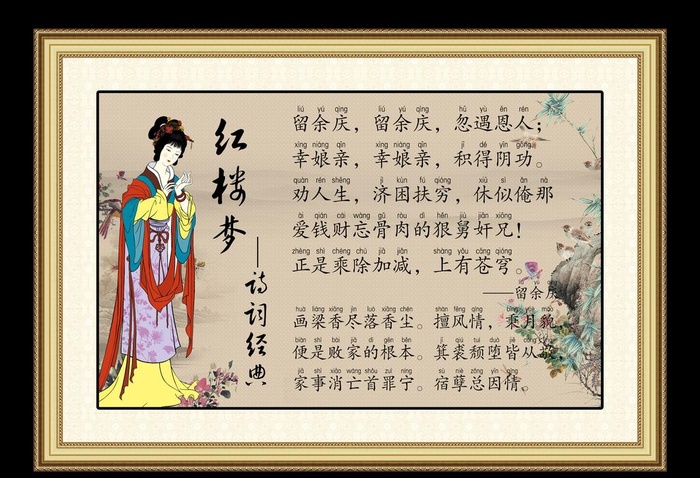 红楼梦
——诗词经典
liú yú qìng liú yú qìng hū yù ēn rén
留余庆，留余庆，忽遇恩人；
xìng niáng qīn xìng niáng qīn jī dé yīn gōng
幸娘亲，幸娘亲，积得阴功。
quàn rén shēng jì kùn fú qióng xiū sì ǎn nà
劝人生，济困扶穷，休似俺那
ài qián cái wàng gǔ ròu dì hěn jiù jiān xiōng
爱钱财忘骨肉的狠舅奸兄！
zhèng shì chéng chú jiā jiǎn shàng yǒu cāng qióng
正是乘除加减，上有苍穹。
liú yú
——留余庆
huà liáng xiāng jìn luò xiāng chén shàn fēng qíng bǐng yuè mào
画梁香尽落香尘。擅风情，秉月貌，
biàn shì bài jiā dì gēn běn jī qiú tuí duò jiē cóng
便是败家的根本。箕裘颓堕皆从敬，
jiā shì xiāo wáng shǒu zuì níng sù niè zǒng yīn qíng
家事消亡首罪宁。宿孽总因情。